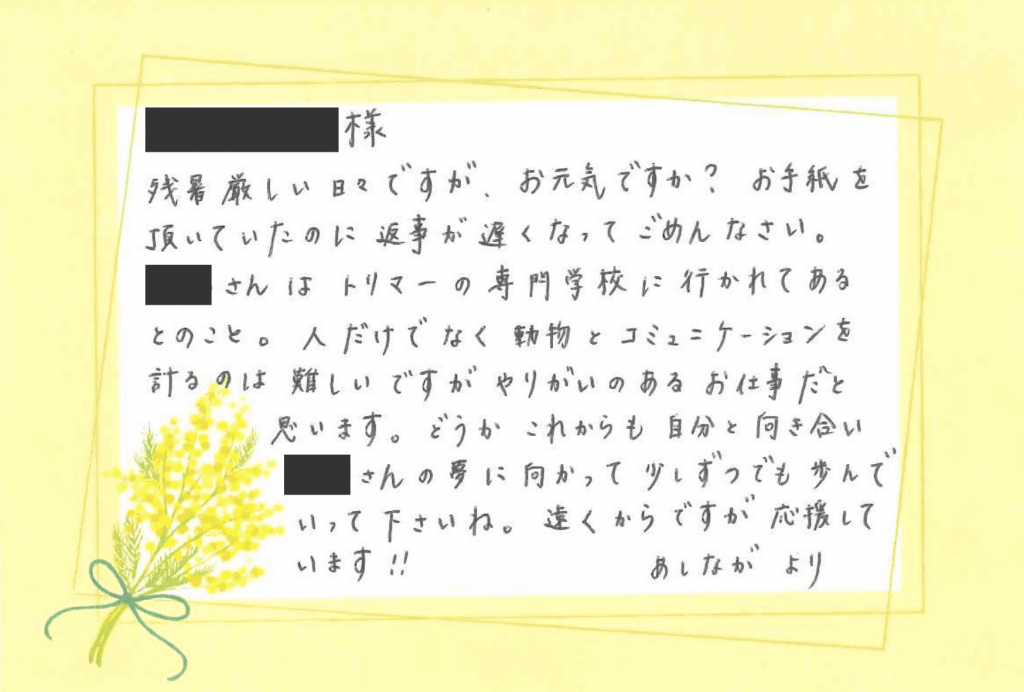 様
残暑厳しい日々ですが、お元気ですか? お手紙を
頂いていたのに返事が遅くなってごめんなさい。
さんはトリマーの専門学校に行かれてある
とのこと。人だけでなく動物とコミュニケーションを
計るのは難しいですがやりがいのあるお仕事だと
思います。どうかこれからも自分と向き合い
さんの夢に向かって少しずつでも歩んで
いって下さいね。遠くからですが応援して
います!! あしながより